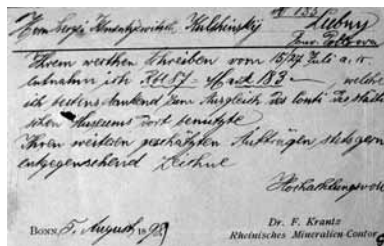 № 135
Herrn Sergii Klimentjewitsch Kulshinsky
Lubny
Gouv. Poltawa
Ihrem werthen Schreiben vom 15/27 Juli a. c.
entnahm ich Rbl 87 = Mark 183.— welche
ich bestens dankend zum Ausgleich des Conti des städti-
schen Museums dort benutzte
Ihren weiteren geschätzten Aufträgen stets gern
entgegensehend zeichne
Hochachtungsvoll
BONN, 5. August 189
Dr. F. Krantz
Rheinisches Mineralien-Contor